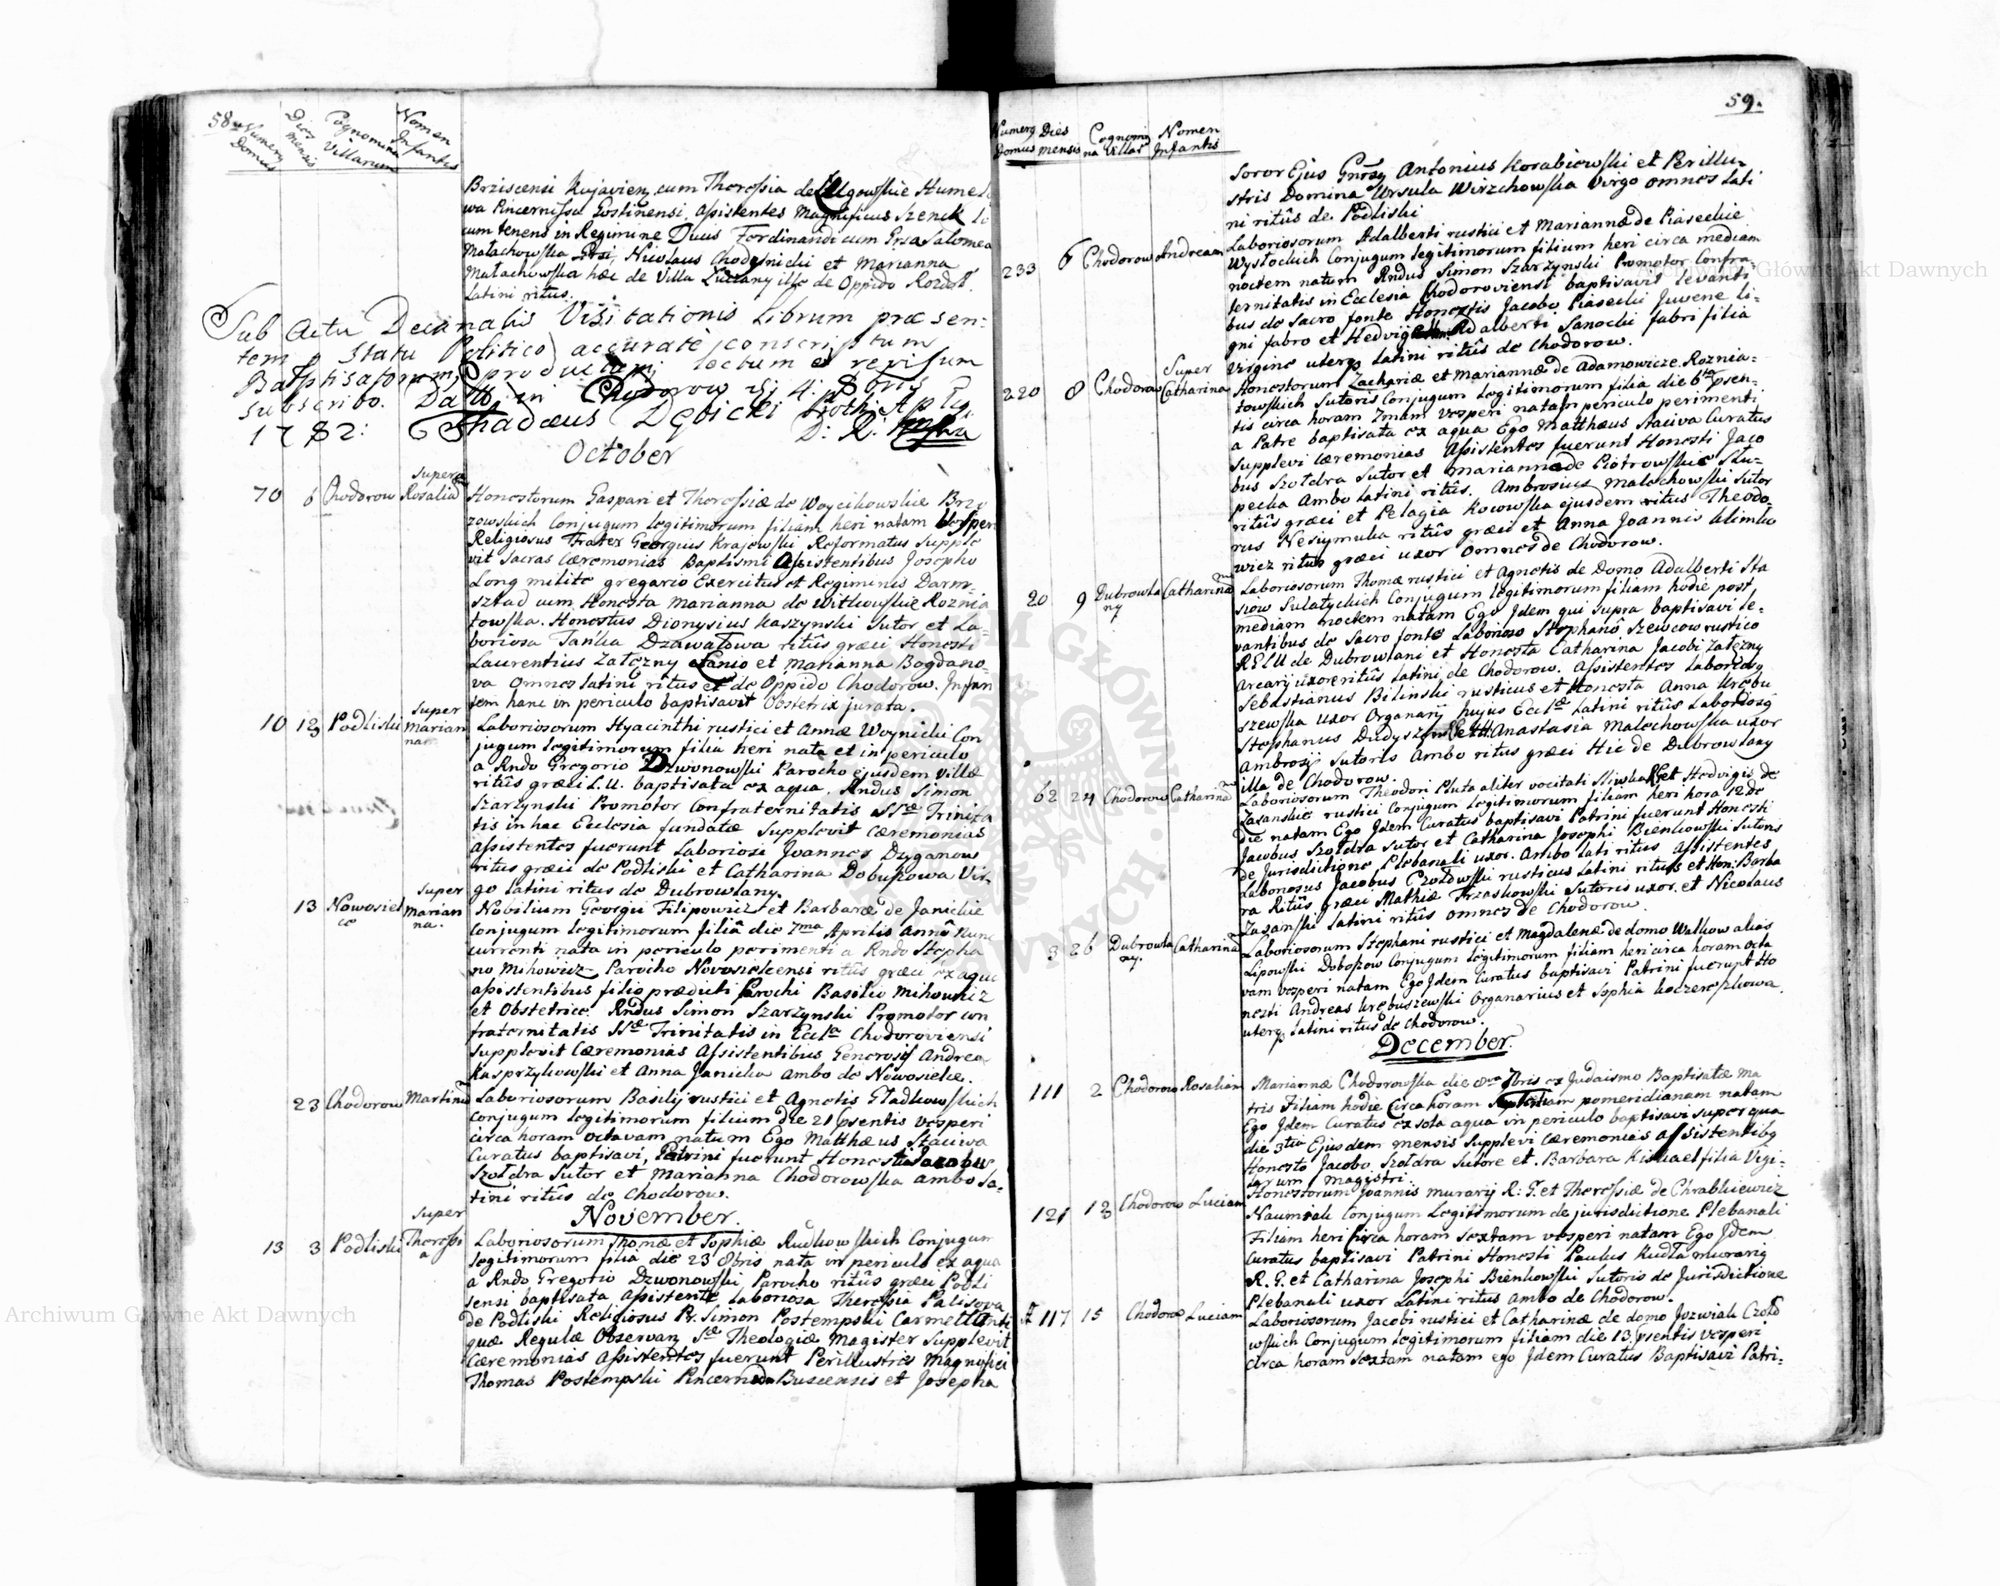 58
Numerus Domus
Dies mensis
Cognomina Villarum
Nomen Infantis
Brziscensi Kujavien, cum Theressia de
wa Pincernissa Gostinensi, Assistentes Magnificus Szenck
cum tenens in Regimine Ducis Ferdinandi cum Grsa Salomea
Malachowska Grsi, Nicolaus Chodysnicki et Marianna
Malachowska hæc de Villa ille de Oppido Rozdoł
Latini ritus.
Sub Actu Decanalis Visitationis Librum præsen-
tem Statu Politico accuratè conscriptum
Baptisatorum, productum, lectum et revisum
subscribo. Datt: in Chodorow di 4: 8bris
1782: Thadæus Dębicki
October
70 6 Chodorow
Super
Rosalia
Honestorum Gaspari et Theressiæ de Woycikowskie Brzo
zowskich Conjugum legitimorum filiam heri natam Vesperi
Religiosus Frater Georgius Krajewski Reformatus Supple
vit Sacras Cæremonias Baptismi Assistentibus Josepho
Long milite gregario Exercitus et Regiminis Darm-
sztad cum Honesta Marianna de Witkowskie Roznia
towska. Honestus Dionysius Kaszynski Sutor et La-
boriosa Tańka Dzawałowa ritûs græci Honesti
Laurentius Zatęzny Lanio et Marianna Bogdano
va Omnes latini ritus et de Oppido Chodorow. Infan
tem hanc in periculo baptisavit Obstetrix jurata.
10 12 Podliski
Super
Marian
na
Laboriosorum Hyacinthi rustici et Annæ Woynicki Con
jugum legitimorum filia heri nata et in periculo
a Rndo Gregorio Dzwonowski Parocho ejusdem Villæ
ritûs græci L.U. baptisata ex aqua. Rndus Simon
Szarzynski Promotor Confraternitatis SSæ Trinita
tis in hac Ecclesia fundatæ Supplevit Cæremonias
Assistentes fuerunt Laboriosi Joannes Dzyganow
ritus græci de Podliski et Catharina Dobuszowa Vir-
go latini ritus de Dubrowlany.
13 Nowosiel
ce
Super
Marian
na.
Nobilium Georgii Filipowicz et Barbaræ de Janickie
Conjugum legitimorum filiâ die 7ma Aprilis Anno Nunc
currenti nata in periculo perimenti a Rndo Stepha
no Mihowicz Parocho Novosielcensi ritûs græci ex aqua
Assistentibus filio prædicti Parochi Basilio Mihowicz
et Obstetrice. Rndus Simon Szarzynski Promotor Con
fraternitatis SSæ Trinitatis in Eccla Chodoroviensi
Supplevit Cæremonias Assistentibus Generosis Andrea
Kasprzykowski et Anna Janicka Ambo de Nowosielce.
23 Chodorow Martinum
Laboriosorum Basilij rustici et Agnetis Gładkowskich
Conjugum legitimorum filium die 21 Psentis vesperi
circa horam octavam natum Ego Matthæus Staciwa
Curatus baptisavi, Patrini fuerunt Honesti Jacobus
Szołdra Sutor et Marianna Chodorowska ambo La-
tini ritûs de Chodorow.
November.
13 3 Podliski
Super
Theressi
a
Laboriosorum Thomæ et Sophiæ Rudkowskich Conjugum
legitimorum filia die 23 8bris nata in periculo ex aqua
a Rndo Gregorio Dzwonowski, Parocho ritûs græci Podli
sensi baptisata Assistente laboriosa Theressia Palisowa
de Podliski Religiosus Pr. Simon Postempski Carmelita Anti
quæ Regulæ Observan, Sæ Theologiæ Magister Supplevit
Cæremonias Assistentes fuerunt Perillustres Magnifici
Thomas Postempski Pincernida Buscensis et Josepha
59.
Numerus Domus
Dies mensis
Cognomi
na Villar
Nomen
Infantis
Soror Ejus Gnrosg Antonius Korabiowski et Perillu-
stris Domina Ursula Wirzchowska Virgo Omnes Lati
ni ritûs de Podliski
233 6 Chodorow Andream
Laboriosorum Adalberti rustici et Mariannæ de Piaseckie
Wysockich Conjugum legitimorum filium heri circa mediam
noctem natum Rndus Simon Szarzynski Promotor Confra-
ternitatis in Ecclesia Chodoroviensi baptisavit levanti
bus de Sacro fonte Honestis Jacobo Piasecki Juvene li-
gni fabro et Hedvige Adalberti Sanocki fabri filia
Virgine uterq latini ritûs de Chodorow.
220 8 Chodorow
Super
Catharina
Honestorum Zachariæ et Mariannæ de Adamowicze Roznia-
towskich Sutoris Conjugum legitimorum filia die 6ta Psen-
tis circa horam 7mam Vesperi natam periculo perimenti
a Patre baptisata ex aqua Ego Matthæus Staciva Curatus
Supplevi Cæremonias Assistentes fuerunt Honesti Jaco
bus Szołdra Sutor et Marianna de Piotrowskie Słu-
pecka Ambo latini ritûs. Ambrosius Malachowski Sutor
ritûs græci et Pelagia Kowowska ejusdem ritus Theodo-
rus Nesiymuka ritûs græci et Anna Joannis Klimko
wicz ritus græci uxor omnes de Chodorow.
20 9 Dubrowla
ny
Catharinam
Laboriosorum Thomæ rustici et Agnetis de Domo Adalberti Sta
siow Sulatyckich Conjugum legitimorum filiam hodie post
mediam noctem natam Ego Idem qui supra baptisavi le-
vantibus de Sacro fonte Laborioso Stephano Szewcow rustico
R.G.L.U de Dubrowlani et Honesta Catharina Jacobi Zatęzny
Arcarij uxore ritûs latini de Chodorow. Assistentes Laboriosg
Sebastianus Bilinski rusticus et Honesta Anna Krebu
szewska uxor Organarij hujus Ecclæ latini ritûs Laboriosg
Stephanus Dudysz et Anastasia Malachowska uxor
Ambrosij Sutoris Ambo ritus græci Hic de Dubrowlany
illa de Chodorow.
62 24 Chodorow Catharinam
Laboriosorum Theodori Pluta aliter vocitati Sliwka R.G. et Hedvigis de
Zazanskie rustici Conjugum legitimorum filiam heri hora 12 de
die natam Ego Idem Curatus baptisavi Patrini fuerunt Honesti
Jacobus Szołdra Sutor et Catharina Josephi Bienkowski Sutoris
de Jurisdictione Plebanali uxor. Ambo lati ritus Assistentes
Laboriosus Jacobus Czołowski rusticus Latini ritûs et Hon: Barba
ra Ritûs græci Mathiæ Trzaskowski Sutoris uxor. et Nicolaus
Zazanski latini ritûs omnes de Chodorow.
3 26 Dubrowla
ny.
Catharinam
Laboriosorum Stephani rustici et Magdalenæ de domo Walkow alias
Lipowski Doboszow Conjugum legitimorum filiam heri circa horam octa
vam vesperi natam Ego Idem Curatus baptisavi Patrini fuerunt Ho
nesti Andreas Krebuszewski Organarius et Sophia
uterq latini ritus de Chodorow.
December.
111 2 Chodorow Rosaliam
Mariannæ Chodorowska die 7bris ex Judaismo Baptisatæ ma
tris Filiam hodie Circa horam pomeridianam natam
Ego Idem Curatus ex sola aqua in periculo baptisavi super qua
die 3tia Ejusdem mensis Supplevi Cæremonias assistentibg
Honesto Jacobo Szołdra Sutore et Barbara filia Vigi-
larum magistri.
121 12 Chodorow Luciam
Honestorum Joannis murarij R: G. et Theressiæ de Chrabkiewicz
Naumiak Conjugum Legitimorum de jurisdictione Plebanali
Filiam heri Circa horam Sextam vesperi natam Ego Idem
Curatus baptisavi Patrini Honesti Paulus Kudła murarig
R. G. et Catharina Josephi Bienkowski Sutoris de Jurisdictione
Plebanali uxor Latini ritus ambo de Chodorow.
117 15 Chodorow Luciam
Laboriosorum Jacobi rustici et Catharinæ de domo Jozwiak Czoło
wskich Conjugum Legitimorum filiam die 13 Psentis vesperi
circa horam Sextam natam ego Idem Curatus Baptisavi Patri-
Archiwum Główne Akt Dawnych
Archiwum Główne Akt Dawnych